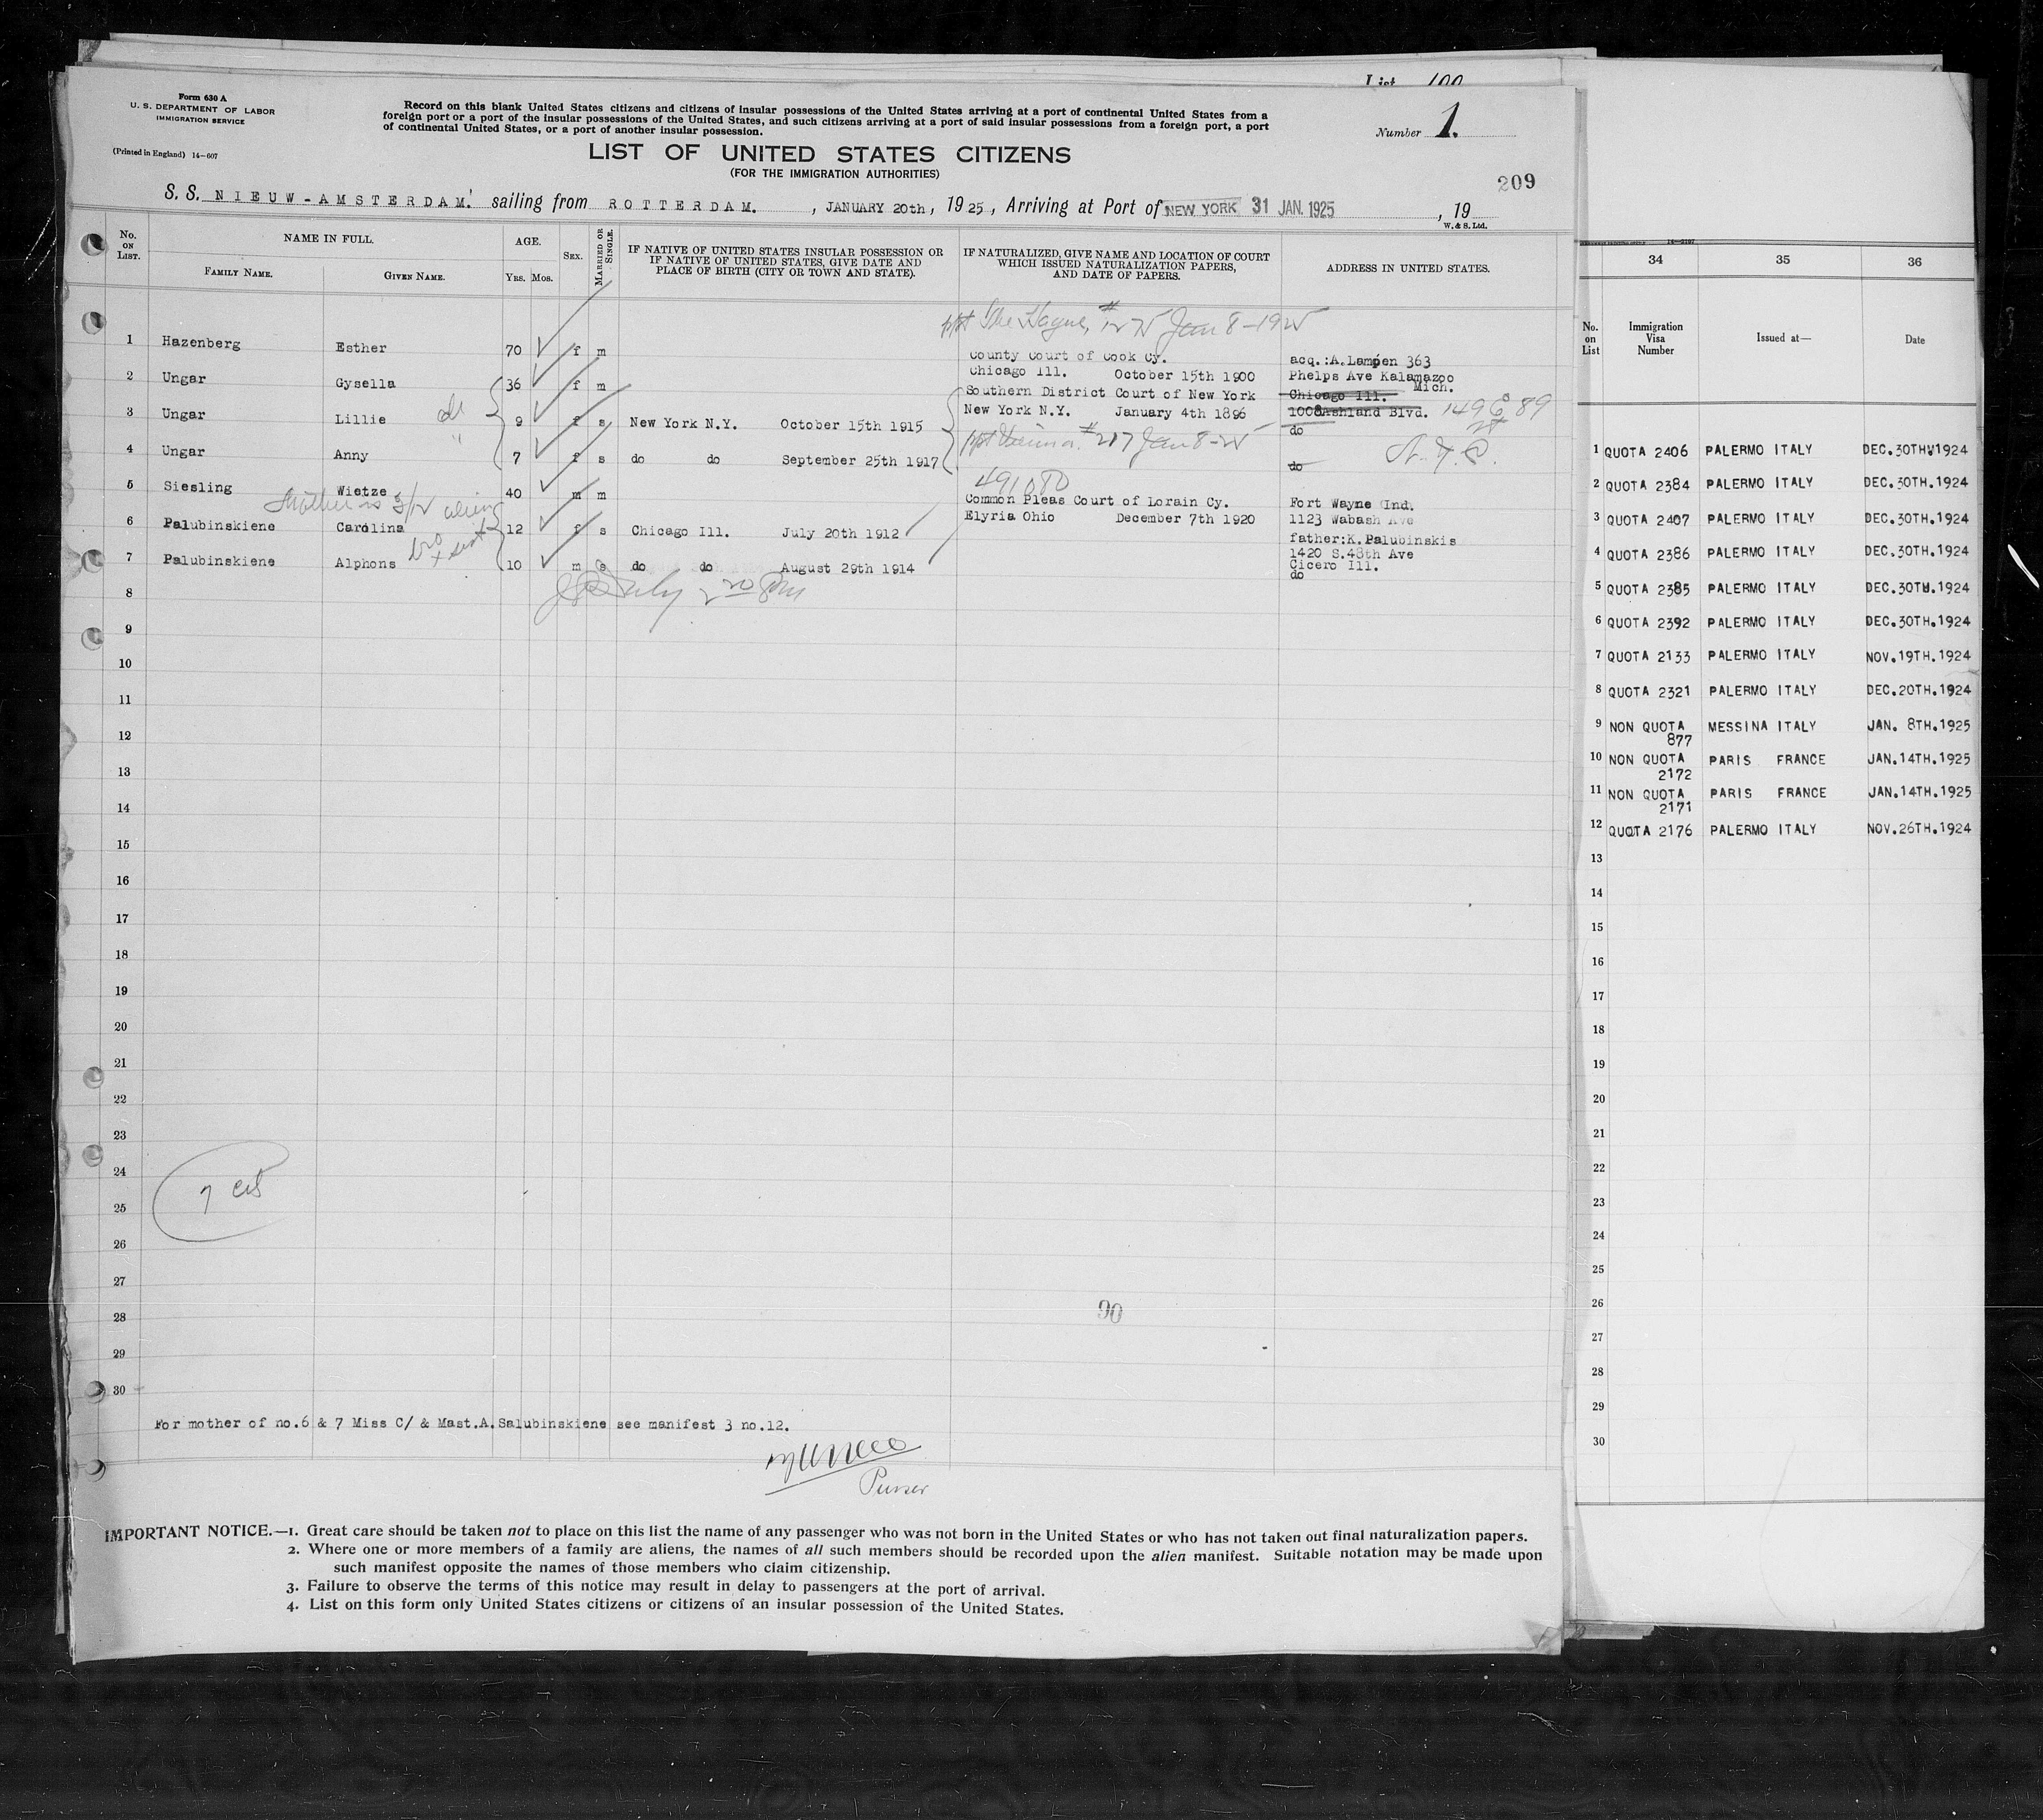 List 100
Form 630 A
U. S. DEPARTMENT OF LABOR
IMMIGRATION SERVICE
(Printed in England) 14—607
Record on this blank United States citizens and citizens of insular possessions of the United States arriving at a port of continental United States from a
foreign port or a port of the insular possessions of the United States, and such citizens arriving at a port of said insular possessions from a foreign port, a port
of continental United States, or a port of another insular possession.
Number 1.
LIST OF UNITED STATES CITIZENS
(FOR THE IMMIGRATION AUTHORITIES)
209
S. S. NIEUW-AMSTERDAM. sailing from ROTTERDAM. , JANUARY 20th, 1925, Arriving at Port of NEW YORK 31 JAN. 1925 , 19
W. & S. Ltd.
No. ON LIST.
NAME IN FULL.
FAMILY NAME.
GIVEN NAME.
AGE.
YRS. MOS.
SEX.
MARRIED OR SINGLE.
IF NATIVE OF UNITED STATES INSULAR POSSESSION OR
IF NATIVE OF UNITED STATES, GIVE DATE AND
PLACE OF BIRTH (CITY OR TOWN AND STATE).
IF NATURALIZED, GIVE NAME AND LOCATION OF COURT
WHICH ISSUED NATURALIZATION PAPERS,
AND DATE OF PAPERS.
ADDRESS IN UNITED STATES.
ppt The Hague, # 1225 Jan 8-1925
1 Hazenberg Esther 70 f m
County Court of Cook Cy.
Chicago Ill. October 15th 1900
acq.:A.Lampen 363
Phelps Ave Kalamazoo
Mich.
2 Ungar Gysella 36 f m
Southern District Court of New York
New York N.Y. January 4th 1896
Chicago Ill.
1008 Ashland Blvd. 149 E 89
St
3 Ungar Lillie 9 f s New York N.Y. October 15th 1915
do
ppt Vienna #217 Jan 8-25
N.Y.C.
4 Ungar Anny 7 f s do do September 25th 1917
do
491080
5 Siesling Wietze 40 m m
Common Pleas Court of Lorain Cy.
Elyria Ohio December 7th 1920
Fort Wayne Ind.
1123 Wabash Ave
Mother is 3/12 alien
6 Palubinskiene Carolina 12 f s Chicago Ill. July 20th 1912
father:K.Palubinskis
1420 S.48th Ave
Cicero Ill.
bro + sist
7 Palubinskiene Alphons 10 m s do do August 29th 1914
do
8
9
10
11
12
13
14
15
16
17
18
19
20
21
22
23
24
7 cit
25
26
27
28
90
29
30
For mother of no.6 & 7 Miss C/ & Mast.A.Salubinskiene see manifest 3 no.12.
Purser
IMPORTANT NOTICE.—1. Great care should be taken not to place on this list the name of any passenger who was not born in the United States or who has not taken out final naturalization papers.
2. Where one or more members of a family are aliens, the names of all such members should be recorded upon the alien manifest. Suitable notation may be made upon
such manifest opposite the names of those members who claim citizenship.
3. Failure to observe the terms of this notice may result in delay to passengers at the port of arrival.
4. List on this form only United States citizens or citizens of an insular possession of the United States.
34 35 36
No. on List
Immigration Visa Number
Issued at—
Date
1 QUOTA 2406 PALERMO ITALY DEC.30TH.1924
2 QUOTA 2384 PALERMO ITALY DEC.30TH.1924
3 QUOTA 2407 PALERMO ITALY DEC.30TH.1924
4 QUOTA 2386 PALERMO ITALY DEC.30TH.1924
5 QUOTA 2385 PALERMO ITALY DEC.30TH.1924
6 QUOTA 2392 PALERMO ITALY DEC.30TH.1924
7 QUOTA 2133 PALERMO ITALY NOV.19TH.1924
8 QUOTA 2321 PALERMO ITALY DEC.20TH.1924
9 NON QUOTA MESSINA ITALY JAN. 8TH.1925
877
10 NON QUOTA PARIS FRANCE JAN.14TH.1925
2172
11 NON QUOTA PARIS FRANCE JAN.14TH.1925
2171
12 QUOTA 2176 PALERMO ITALY NOV.26TH.1924
13
14
15
16
17
18
19
20
21
22
23
24
25
26
27
28
29
30